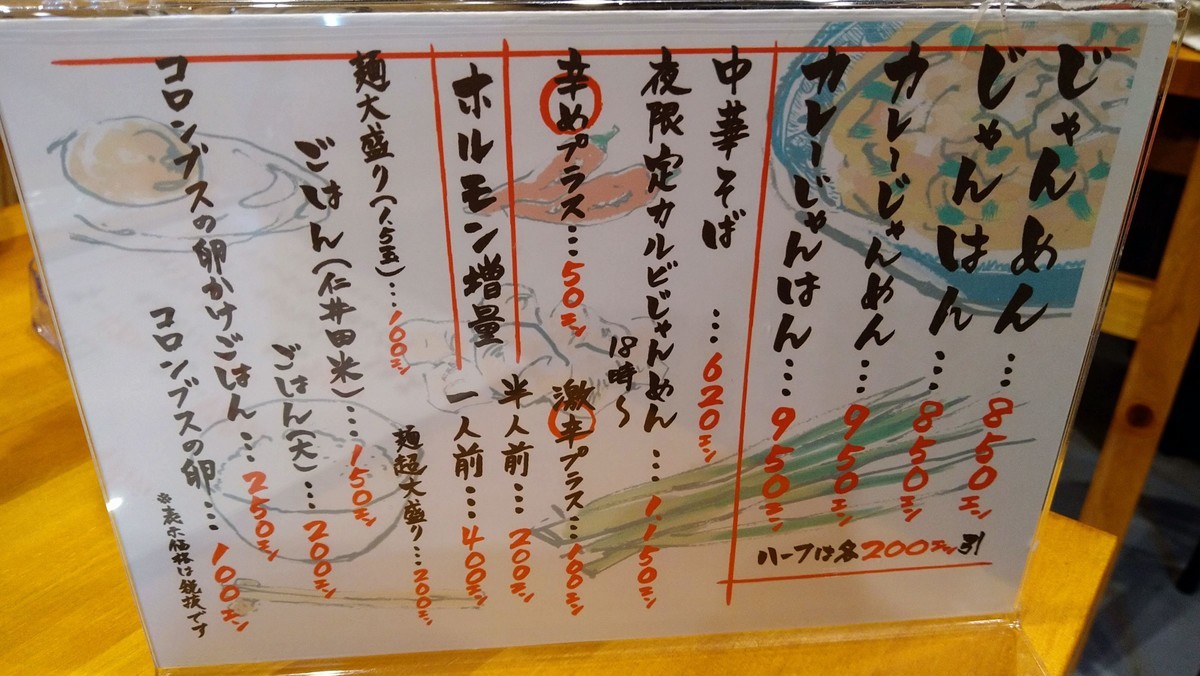 じゃんめん…850エン
じゃんはん…850エン
カレーじゃんめん…950エン
カレーじゃんはん…950エン
ハーフは各200エン引
中華そば…620エン
夜限定カルビじゃんめん…1,150エン
18時〜
辛めプラス…50エン
激辛プラス…100エン
ホルモン増量
半人前…200エン
一人前…400エン
麺大盛り(1.5玉)…100エン
麺超大盛り…200エン
ごはん(仁井田米)…150エン
ごはん(大)…200エン
コロンブスの卵かけごはん…250エン
コロンブスの卵…100エン
※表示価格は税抜です